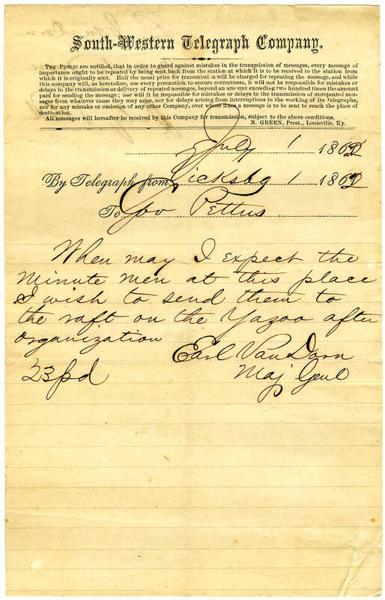 South-Western Telegraph Company.
THE PUBLIC are notified, that in order to guard against mistakes in the transmission of messages, every message of
importance ought to be repeated by being sent back from the station at which it is to be received to the station from
which it is originally sent. Half the usual price for transmission will be charged for repeating the message, and while
this company will, as heretofore, use every precaution to ensure correctness, it will not be responsible for mistakes or
delays in the transmission or delivery of repeated messages, beyond an amount exceeding two hundred times the amount
paid for sending the message; nor will it be responsible for mistakes or delays in the transmission of unrepeated mes-
sages from whatever cause they may arise, nor for delays arising from interruptions in the working of its telegraphs,
nor for any mistake or omission of any other Company, over whose lines a message is to be sent to reach the place of
destination.
All messages will hereafter be received by this Company for transmission, subject to the above conditions.
N. GREEN, Prest., Louisville, Ky.
July 1 1862
By Telegraph from Vicksbg 1 1862
To Gov Pettus
When may I expect the
minute men at this place
I wish to send them to
the raft on the Yazoo after
organization
Earl Van Dorn
23 pd Maj Genl